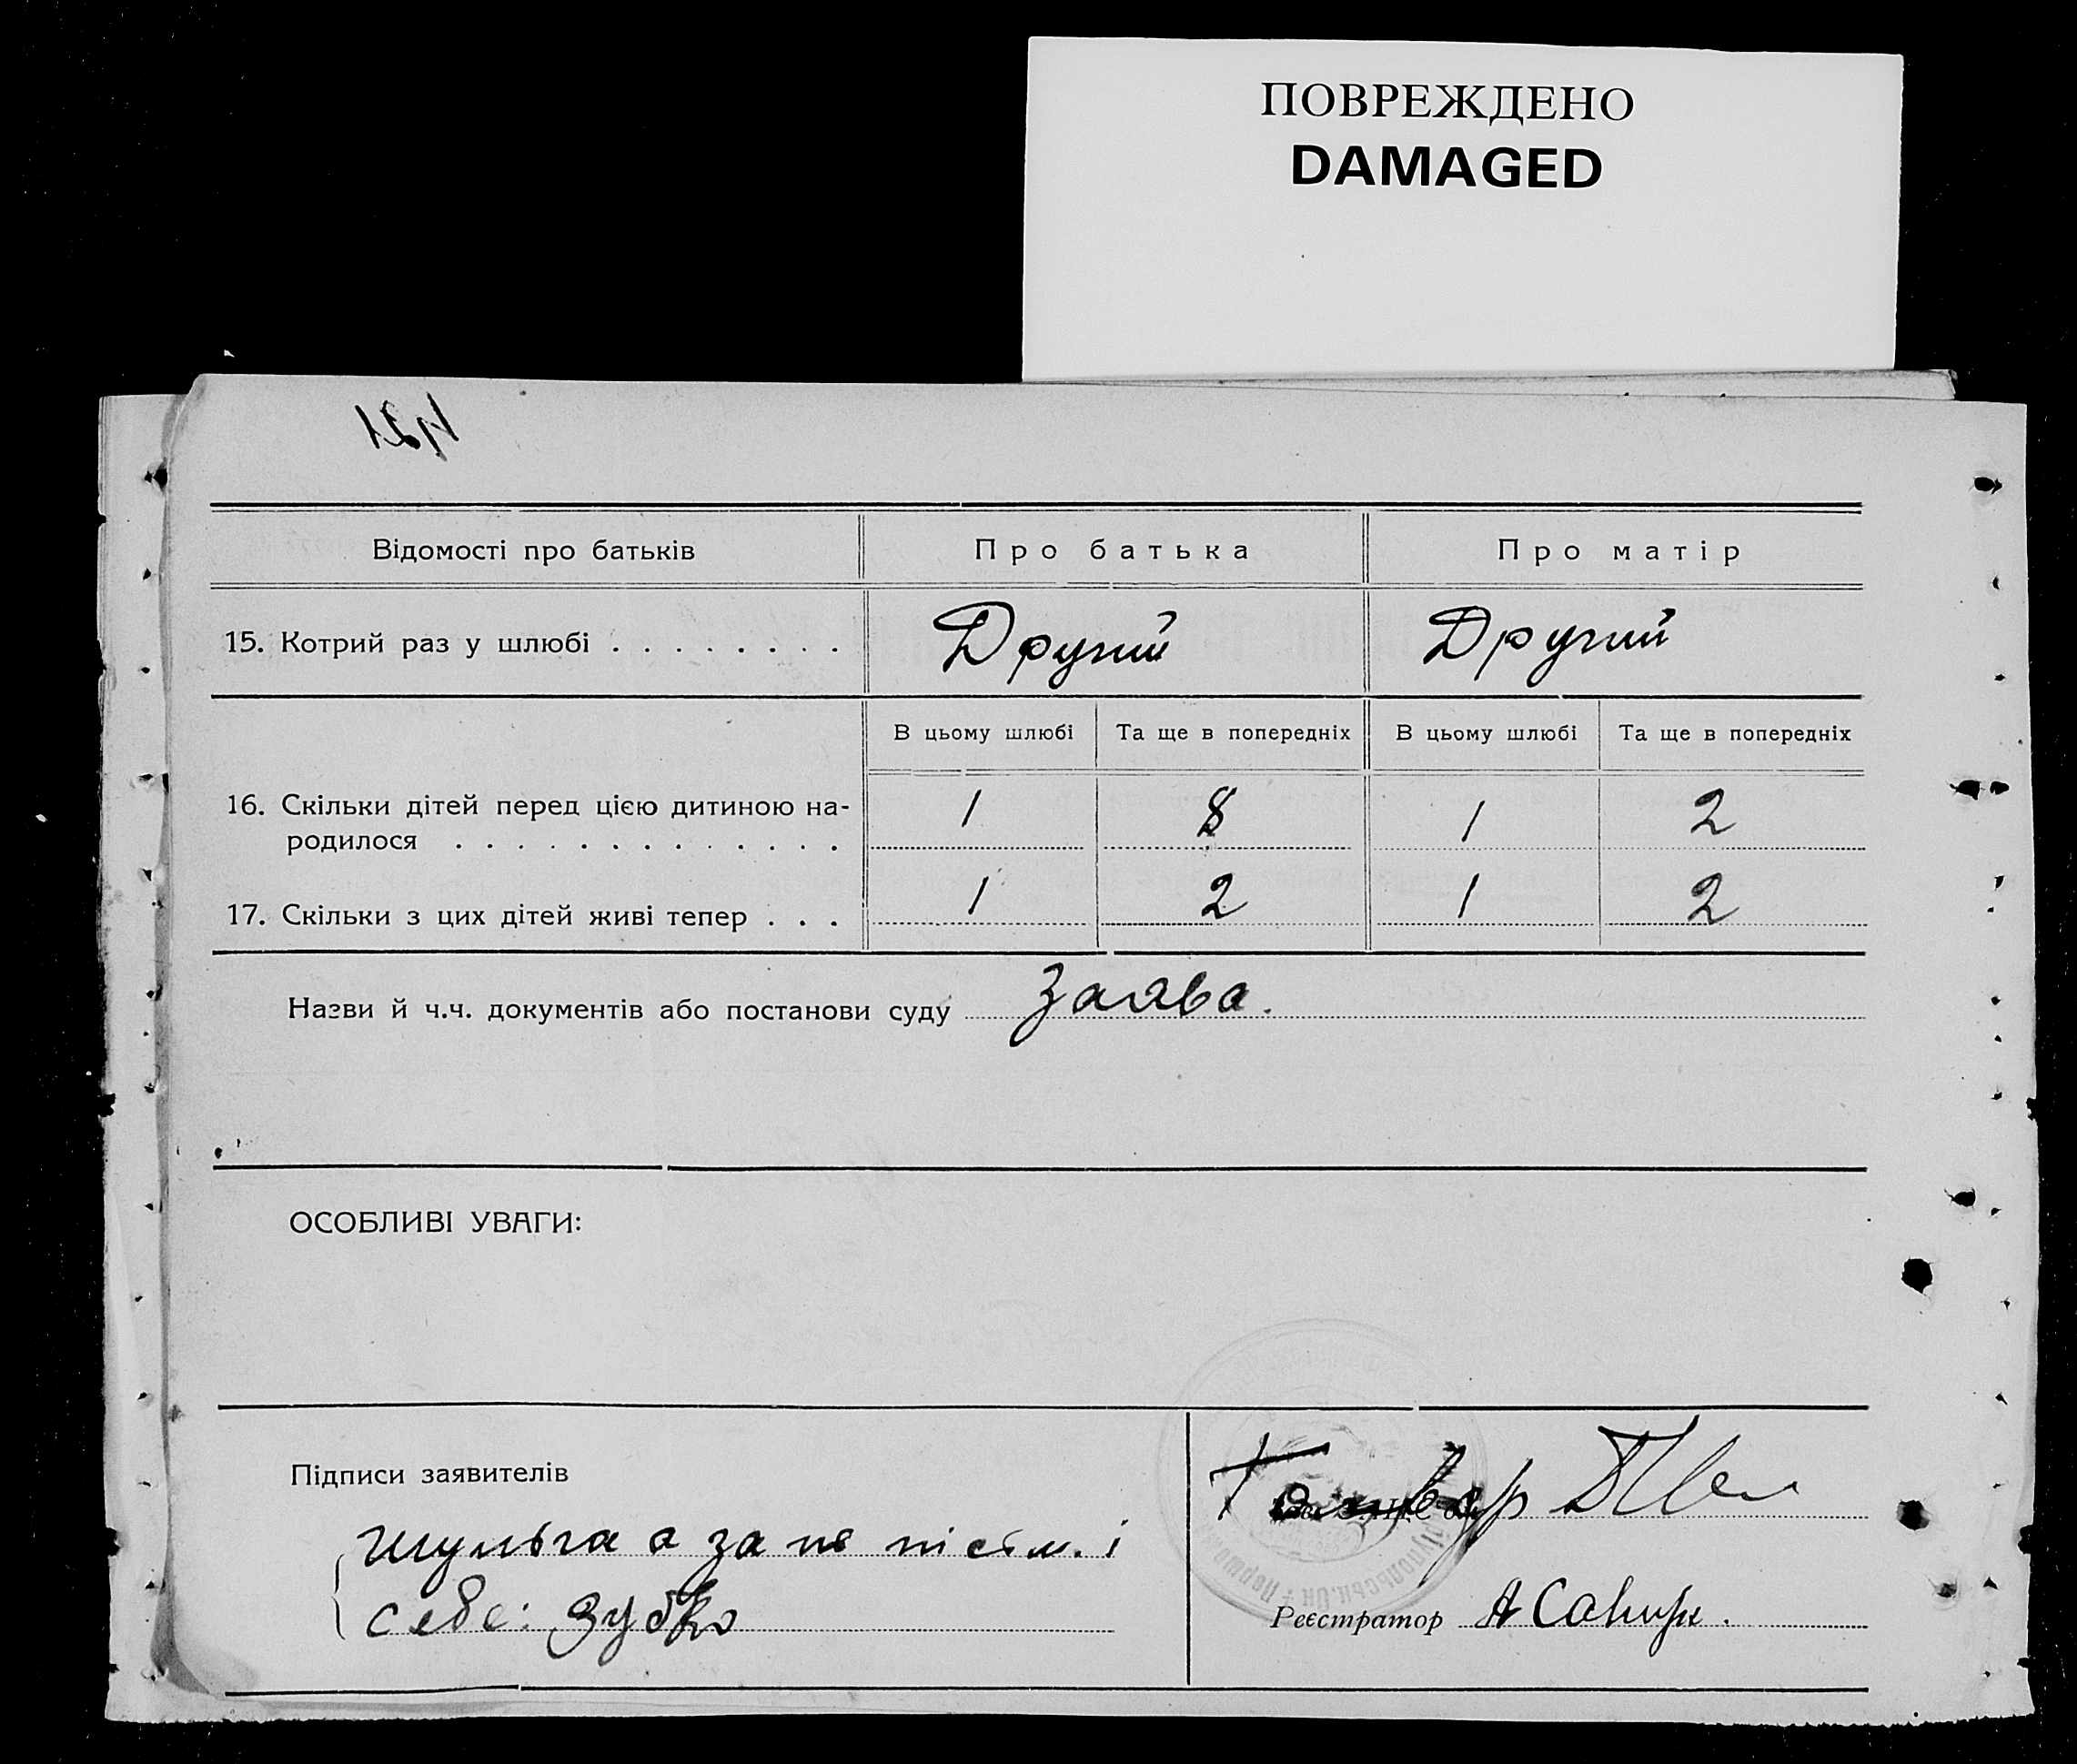 ПОВРЕЖДЕНО
DAMAGED
421
Відомості про батьків Про батька Про матір
15. Котрий раз у шлюбі . . . . . . . . Другий Другий
В цьому шлюбі Та ще в попередніх В цьому шлюбі Та ще в попередніх
16. Скільки дітей перед цією дитиною на-
родилося . . . . . . . . . . . . . 1 8 1 2
17. Скільки з цих дітей живі тепер . . . 1 2 1 2
Назви й ч.ч. документів або постанови суду Заява.
ОСОБЛИВІ УВАГИ:
Підписи заявителів
Шульга а за
себе: Зубко
Реєстратор А